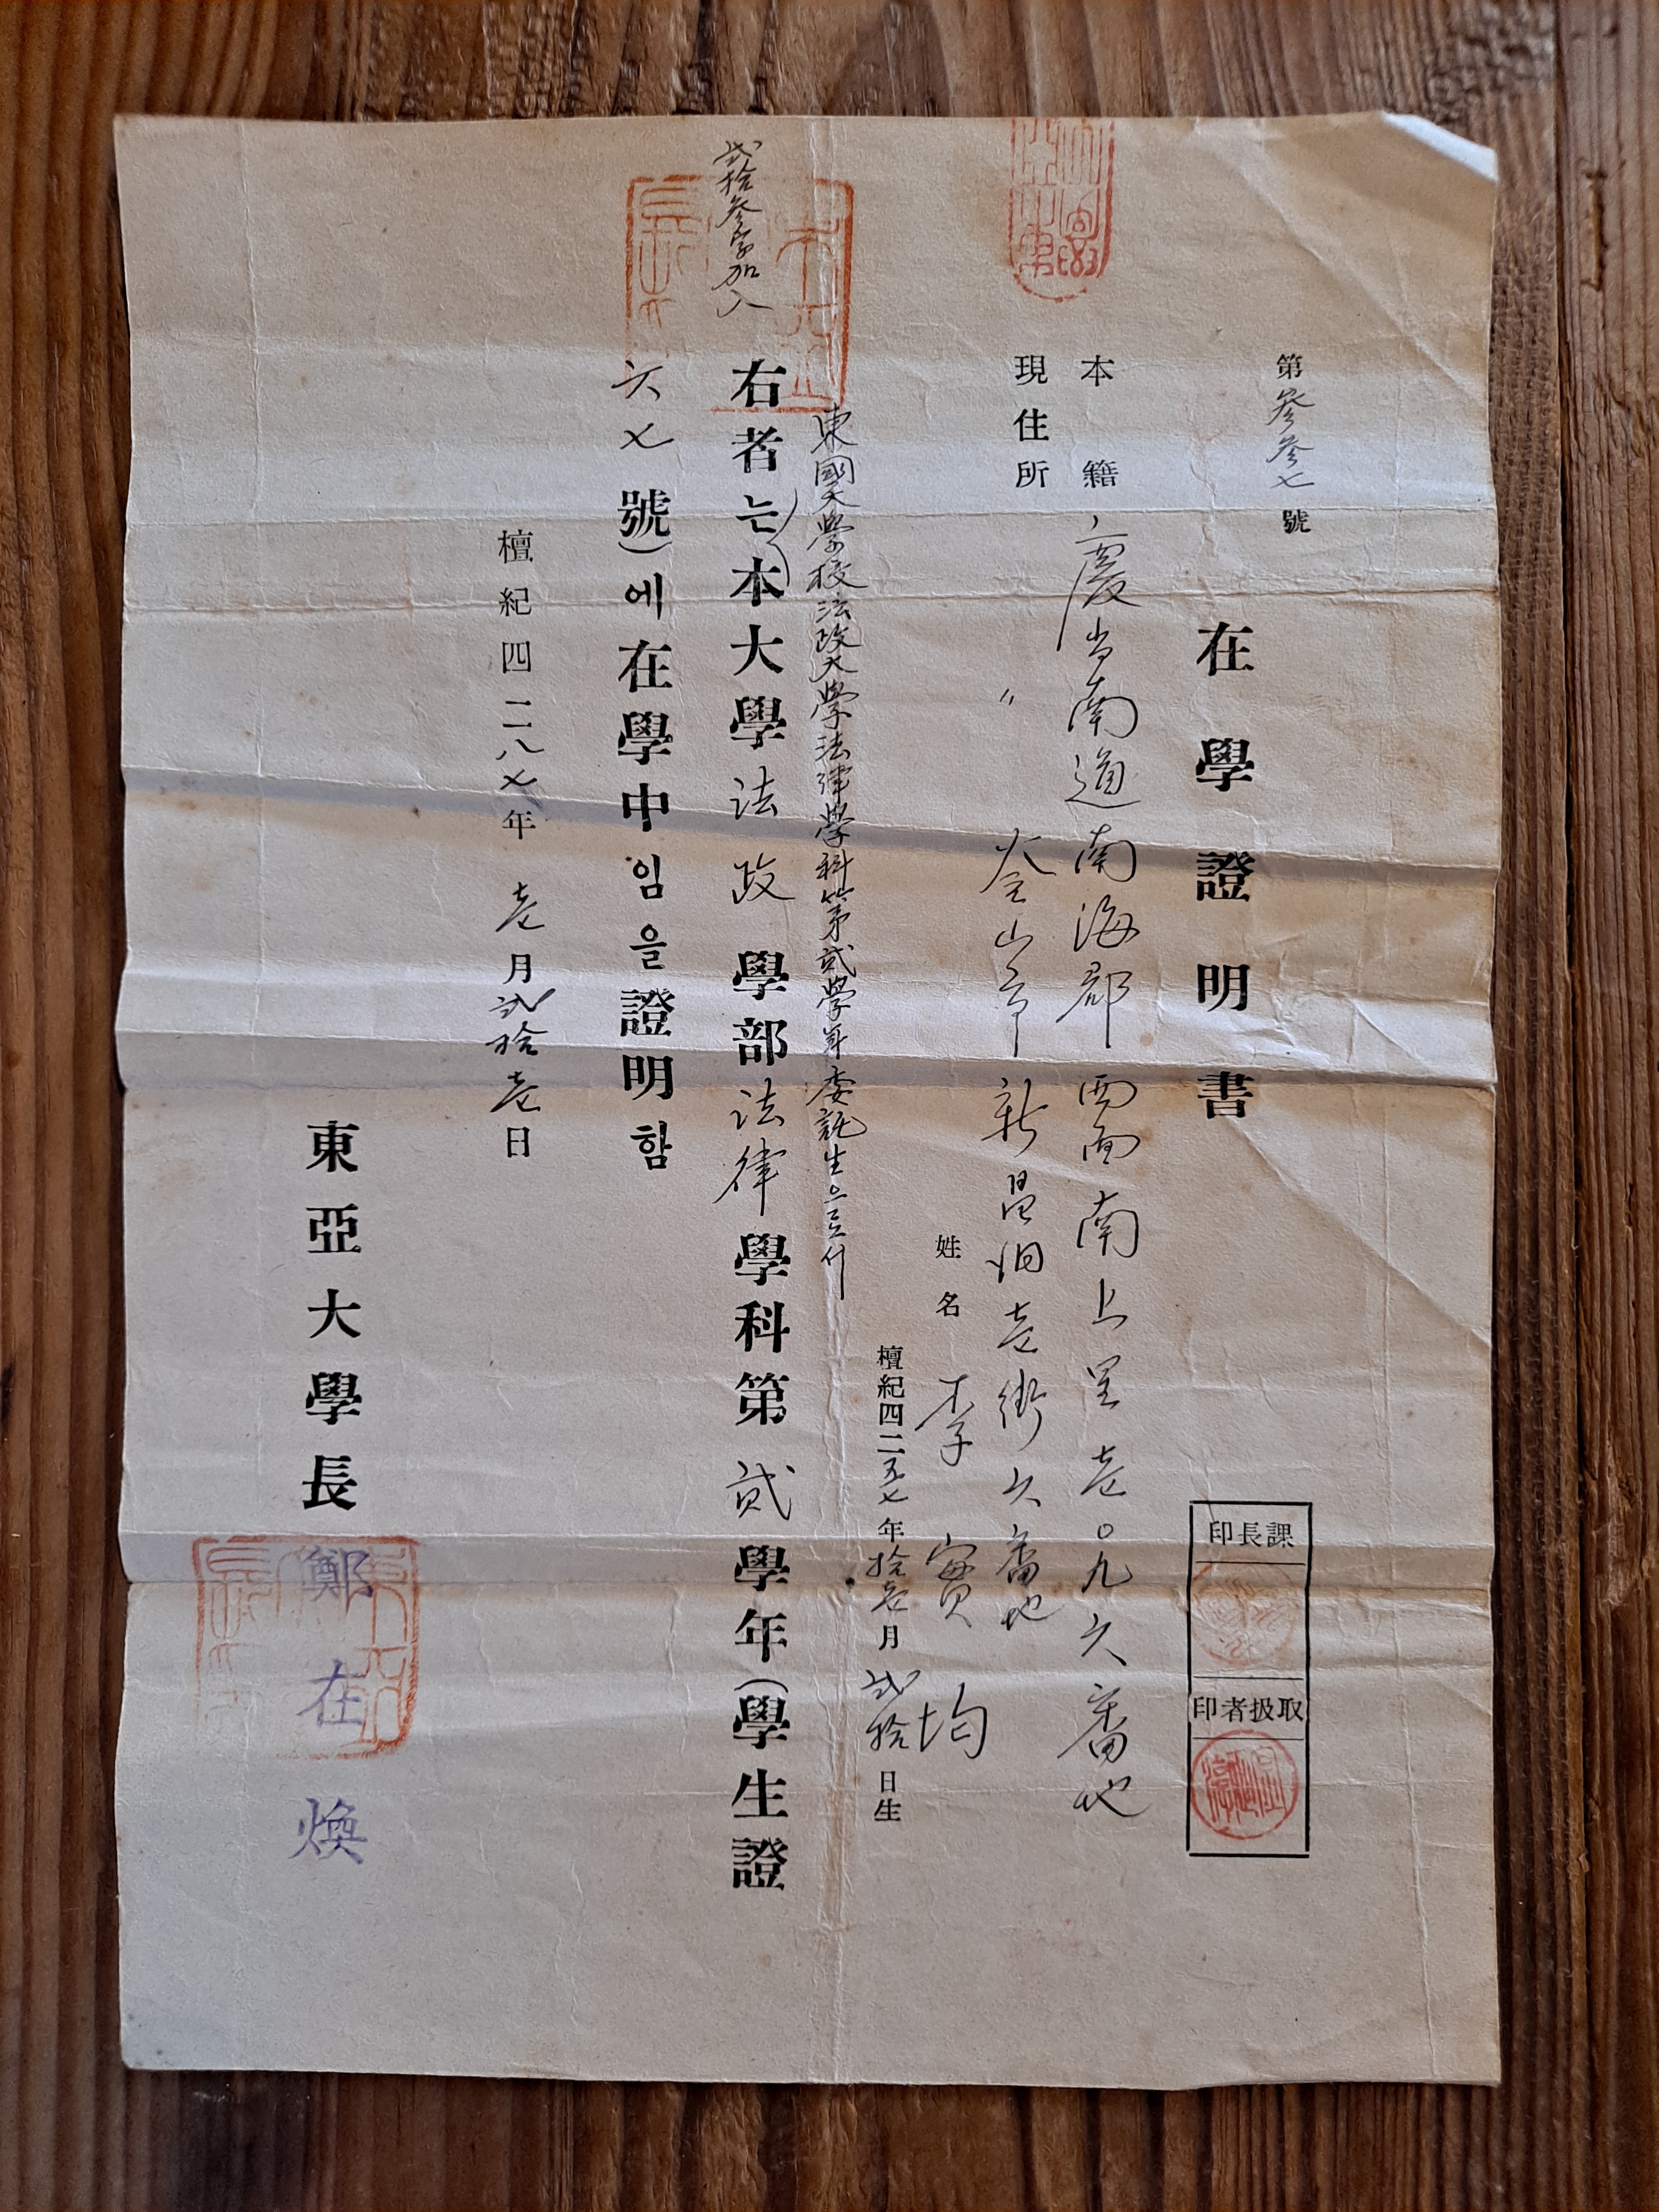 第參參七號
在學證明書
本籍 慶尙南道南海郡西面南上里壱〇九六番地
現住所 〃 釜山市新昌洞壱街六番地
姓名 李寶均
檀紀四二五七年拾壱月弐拾日生
東國大學校法政大學法律學科第貳學年委託生으로서
弐拾參字加入
右者는本大學法政學部法律學科第貳學年(學生證
六七號)에在學中임을證明함
檀紀四二八七年壱月弐拾壱日
東亞大學長 鄭在煥
印長課
印者扱取